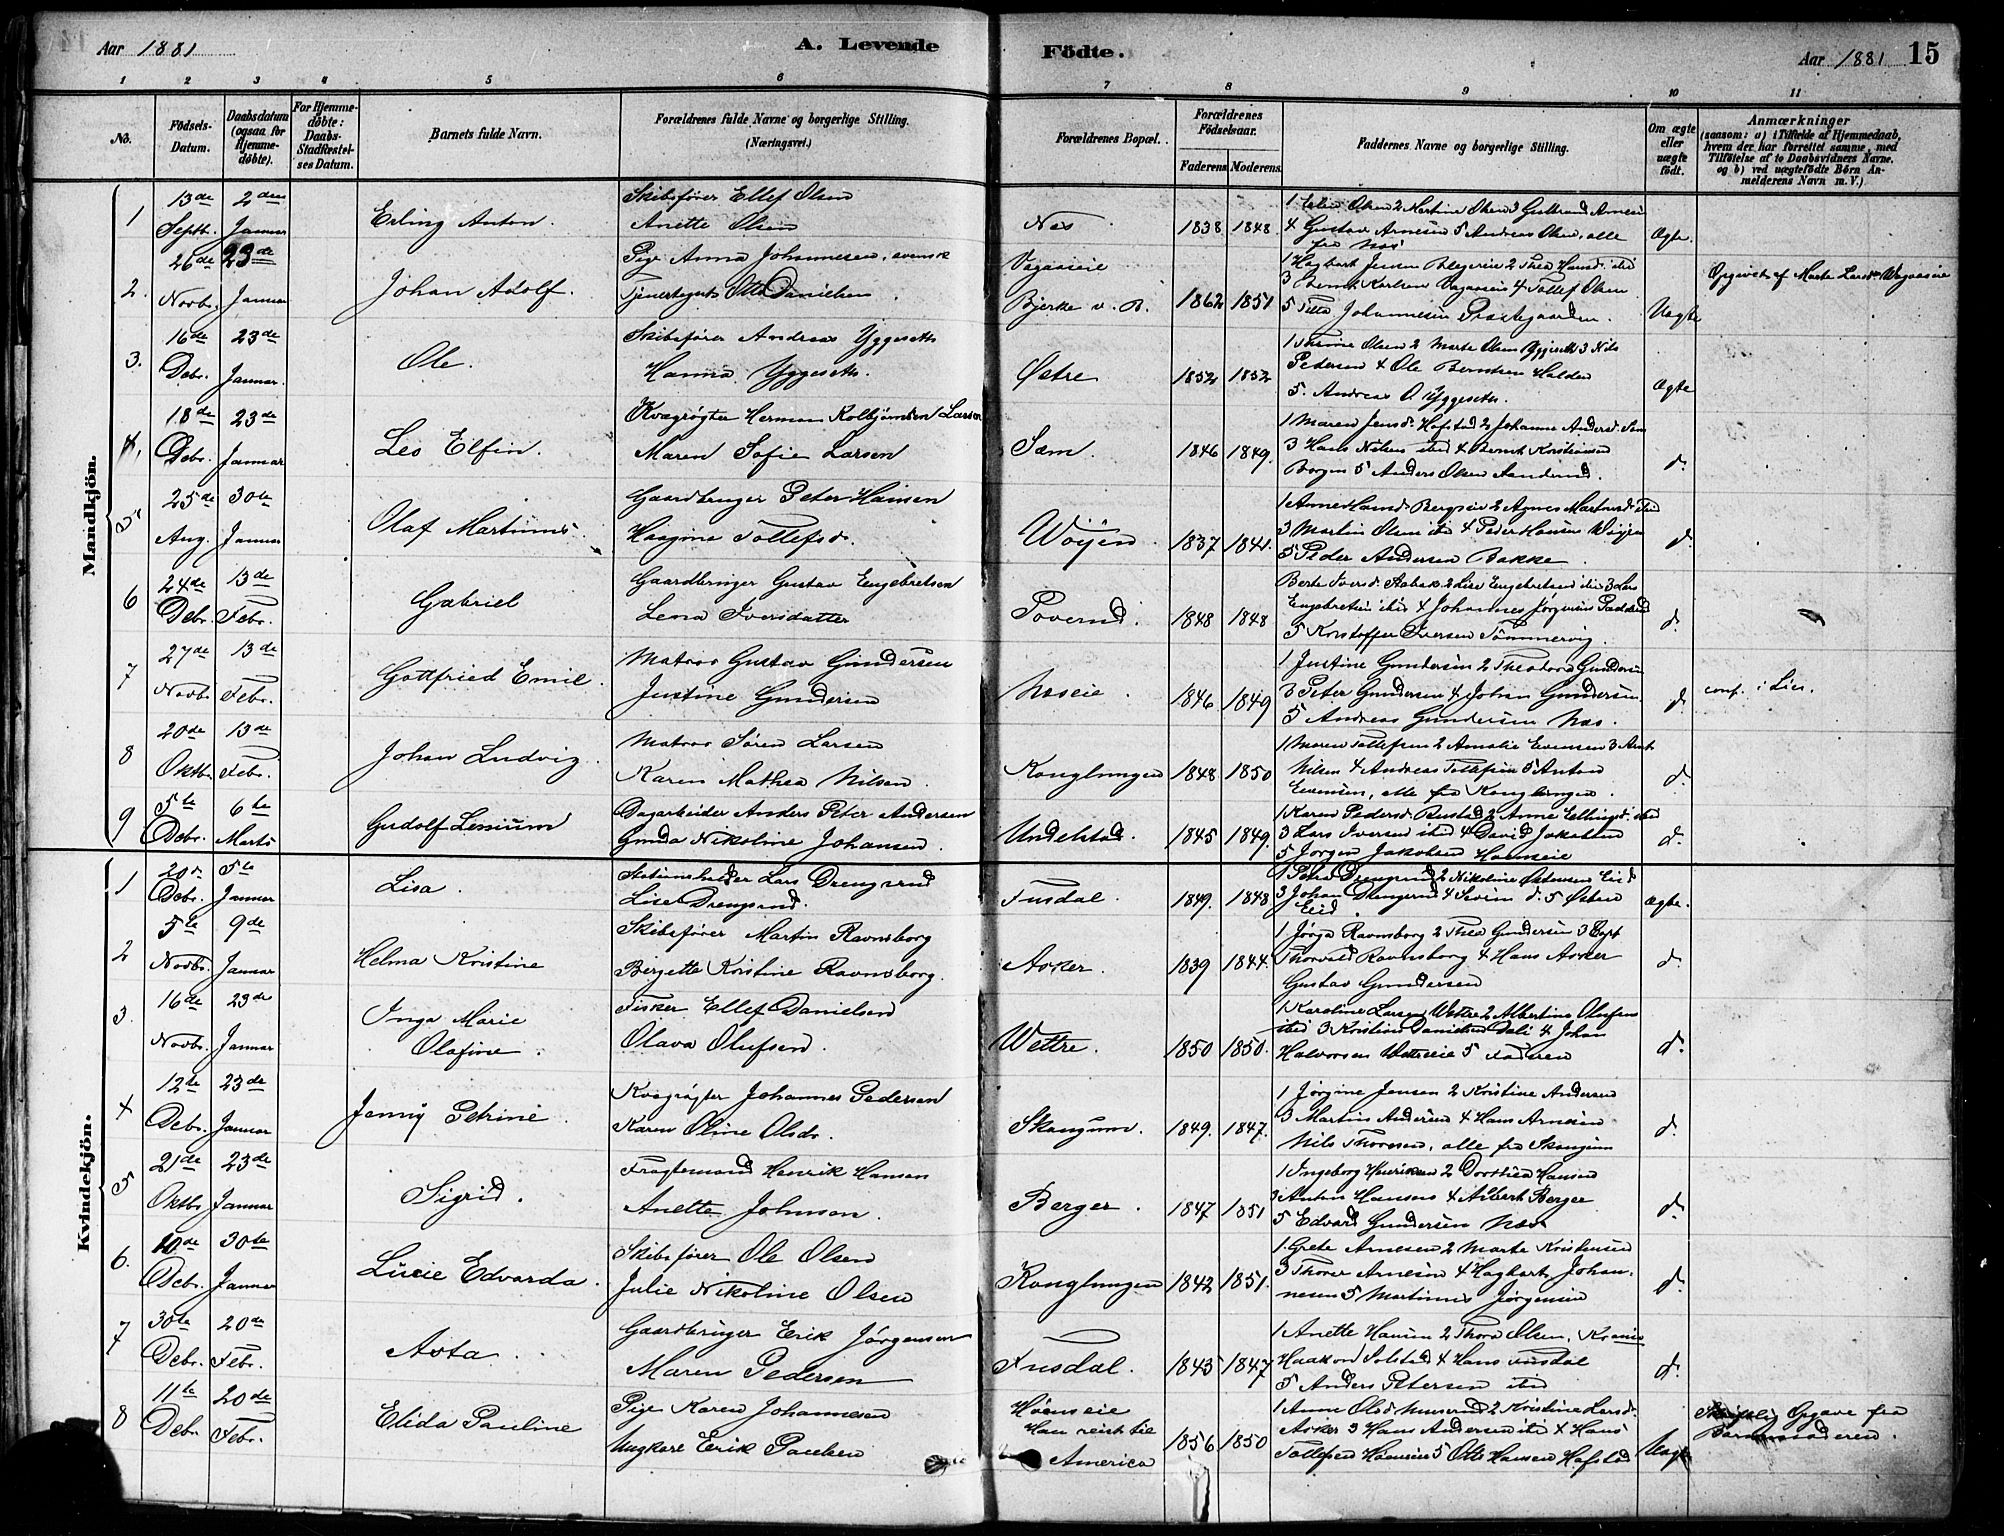 Aar 1881
A. Levende
Födte.
Aar 1881
15
1 2 3 4 5 6 7 8 9 10 11
No.
Födsels-Datum.
Daabsdatum (ogsaa for Hjemmedöbte).
For Hjemmedöbte: Daabs-Stadfæstelses Datum.
Barnets fulde Navn.
Forældrenes fulde Navne og borgerlige Stilling. (Næringsvei.)
Forældrenes Bopæl.
Forældrenes Födselsaar.
Faderens Moderens.
Faddernes Navne og borgerlige Stilling.
Om ægte eller uægte födt.
Anmærkninger
(saasom: a) i Tilfælde af Hjemmedaab, hvem der har forrettet samme, med Tilföielse af to Daabsvidners Navne. og b) ved uægtefödte Börn Anmelderens Navn m. V.)
Mandkjön.
1
13de Septb.
2den Januar
Erling Anton.
Skibsfører Ellef Olsen
Anette Olsen
Næs
1838 1848
2 Martine Olsen 3 Gultrand Arnesen
4 Gustav Arnesen 5 Andreas Olsen, alle
fra Næs
Ægte.
2.
26de Novbr.
23de Januar
Johan Adolf.
Pige Anna Johannesen, svensk
Tjenestegut Otto Danielsen
Vagaaseie
Bjerke v. B.
1862 1851
1 Hagbart Jensen 2 Thea Hansd. ibid
3 Bernt Karlsen Vagaaseie 4 Tollef Olsen
5 Johannesen Præstegaarden.
Uægte
Opgivet af Marte Larsd. Wagaaseie
3.
16de Debr.
23de Januar.
Ole.
Skibsfører Andreas Yggeseth
Hanna Yggeseth.
Østre
1852 1852
2 Marte Olsen Yggeseth 3 Nils
Pedersen 4 Ole Berntsen Halden
5. Andreas O Yggeseth.
Ægte
4.
18de Debr.
23de Januar
Leo Elfin.
Kvægrøgter Herman Kolbjørnsen Larsen
Maren Sofie Larsen
Sem
1846 1849.
1 Maren Jensd. Hofstad 2 Johanne Andersd. Sem
3 Hans Nilsen ibid 4 Bernt Kristiansen
Borgen 5 Anders Olsen
d.
5.
25de Aug.
30te Januar
Olaf Martinius.
Gaardbruger Peter Hansen
Haagine Tollefsd.
Wøyen
1837 1841.
1 Anne Hansd. Bergseie 2 Agnes Martinsd. ibid
3 Martin Olsen ibid 4 Peder Hansen Wøyen
5 Peder Andersen Bakke
d.
6
24de Debr.
13de Febr.
Gabriel
Gaardbruger Gustav Engebretsen
Lena Iversdatter
Poverud.
1848 1848
Berte Iversd. 2 Lise Engebretsen ibid 3 Lars
Engebretsen ibid 4 Johannes Jørgensen
5 Kristoffer Iversen Tömmervig.
d.
7
27de Novbr.
13de Febr.
Gottfried Emil.
Matros Gustav Gundersen
Justine Gundersen
Næseie
1846 1849
1 Justine Gundersen 2 Theodora Gundersen
3 Peter Gundersen 4 Johan Gundersen
5 Andreas Gundersen Næs.
d.
conf. i Lier.
8
20de Oktbr.
13de Febr.
Johan Ludvig.
Matros Søren Larsen
Karen Mathea Nilsen
Konglungen
1848 1850
1 Maren Tollefsen 2 Amalie Evensen 3
Nilsen 4 Andreas Tollefsen 5 Anton
Evensen, alle fra Konglungen
d.
9
5te Debr.
6te Marts
Gudolf Lenium
Dagarbeider Anders Peter Andersen
Gunda Nikoline Johansen.
Undelstad.
1845 1849.
1 Karen Pedersd. Bustad 2 Anne Ellingsd. ibid
3 Lars Iversen ibid 4 David Jakobsen
5 Jørgen Jakobsen
d.
Kvindekjön.
1
20de Debr.
5te Januar
Lisa.
Stationsholder Lars Drengsrud
Lise Drengsrud.
Fusdal.
1849. 1848
1 Drengsrud 2 Nikoline Østensen Eid
3 Johan Drengsrud 4 Severin d. 5 Østen
Eid
Ægte.
2
5te Novbr.
9de Januar
Helma Kristine
Skibsfører Martin Ravnsborg
Bergette Kristine Ravnsborg.
Asker.
1839 1844.
1 Jørga Ravnsborg 2 Thea Gundersen 3
Thorvald Ravnsborg 4 Hans Asker
Gustav Gundersen
d.
3.
16de Novbr.
23de Januar
Inga Marie
Olafine.
Fisker Ellef Danielsen
Olava Olufsen.
Wettre.
1850 1850.
1 Karoline Larsen Wettre 2 Albertine Olufsen
ibid 3 Kristine Danielsen 4 Johan
Halvorsen Wettreeie 5 Faderen
d.
4
12te Debr.
23de Januar
Janny Petrine
Kvægrøgter Johannes Pedersen
Karen Oline Olsdr.
Skougum.
1849. 1847.
1 Jørgine Jensen 2 Kristine Andersen
3 Martin Andersen 4 Hans Arnesen
Nils Thoresen, alle fra Skougum
d.
5
21de Oktbr
23de Januar
Sigrid.
Fragtemand Henrik Hansen
Anette Johnsen.
Berger.
1847 1851
1 Ingeborg Henriksen 2 Dorthea Hansen
3 Anton Hansen 4 Albert Berger
5 Edvard Gundersen Næs
d.
6.
10de Debr.
30te Januar
Lucie Edvarda.
Skibsfører Ole Olsen
Julie Nikoline Olsen
Konglungen
1842 1851.
1. Grete Arnesen 2 Marte Kristensen
3 Thorer Arnesen 4 Hagbart Johan-
nesen 5 Martinus Jørgensen
d.
7
30te Debr.
20de Febr.
Asta.
Gaardbruger Erik Jørgensen
Maren Pedersen
Fusdal.
1843 1847
1 Anette Hansen 2 Thora Olsen,
Haakon Solstad 4 Hans Fusdal
5 Anders Petersen ibid
d.
8
11te Debr.
20de Febr.
Elida Pauline
Pige Karen Johannesen
Ungkarl Erik Paulsen
Han reist til
America
1856 1850
1 Anne Olsd. 2 Kristine Larsd.
Asker 3 Hans Andersen ibid 4 Hans
Tollefsen 5 Otto Hansen Hofstad
Uægte
Skriftlig Opgave fra
Barnemoderen.